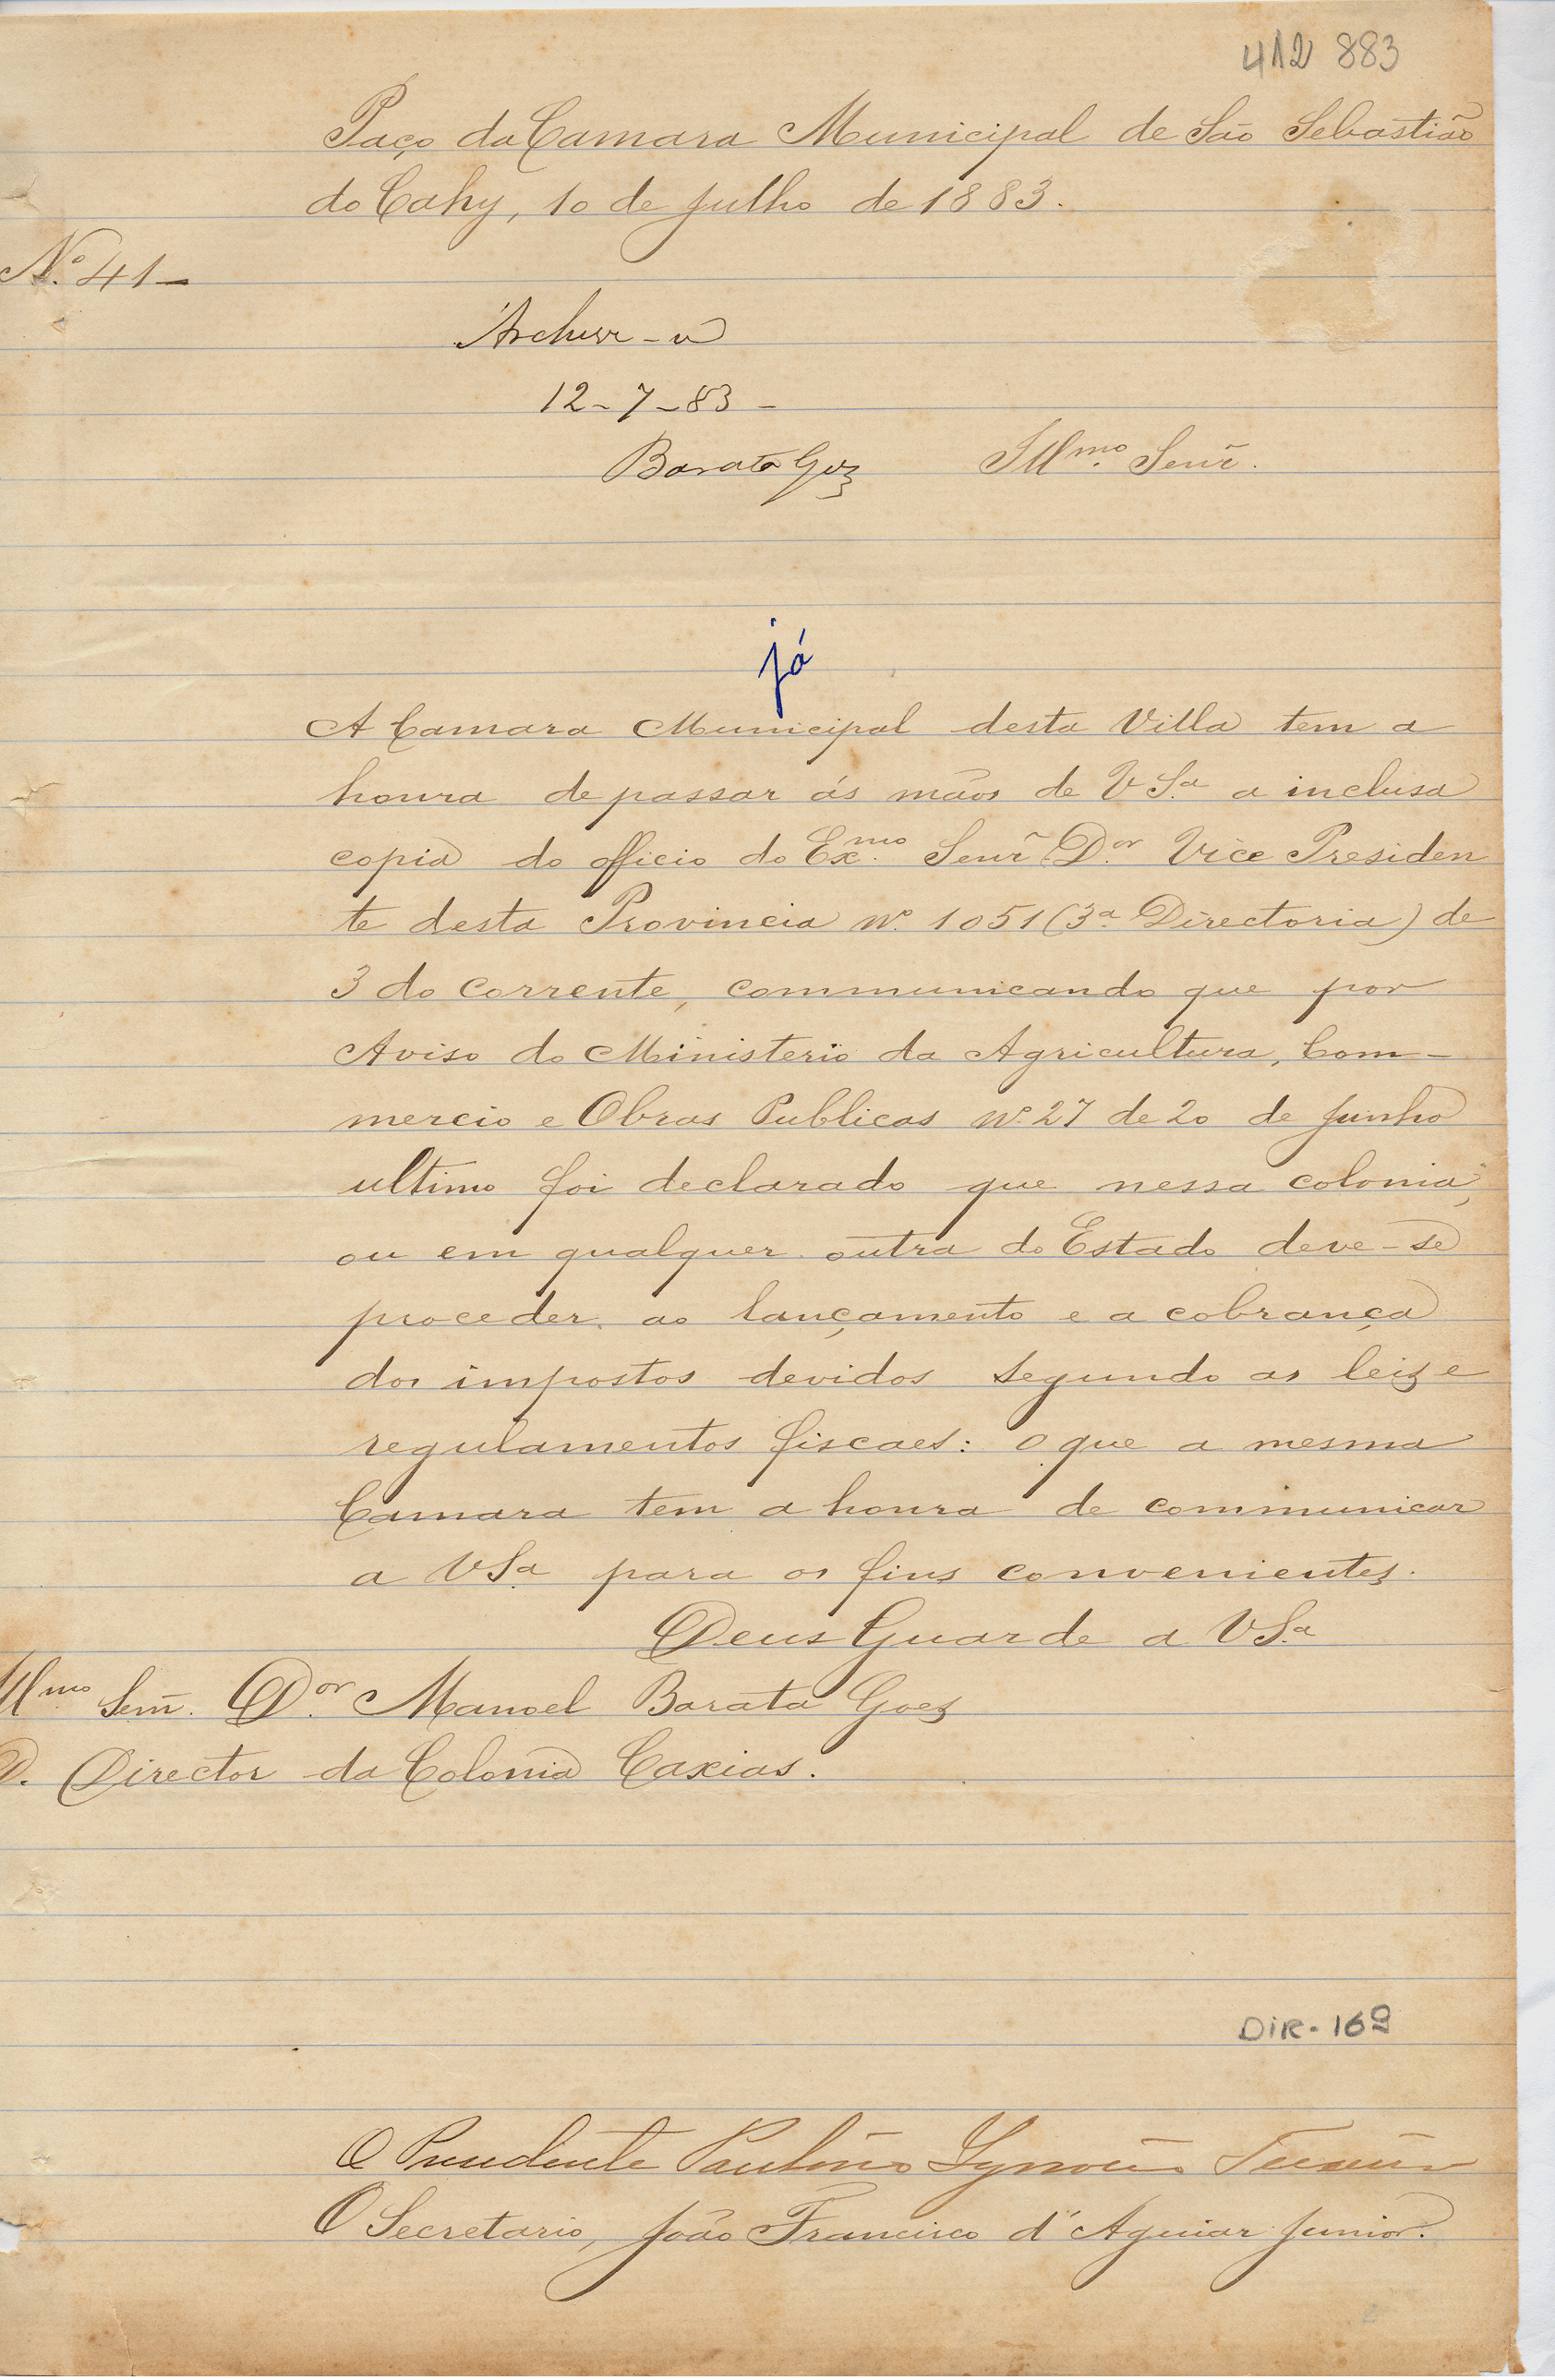 412 883
Paço da Camara Municipal de São Sebastião
do Cahy, 10 de Julho de 1883.
Nº 41 –
Archive-se
12-7-83-
Barata Goes
Illmo. Senr.
já
A Camara Municipal desta Villa tem a
honra de passar ás mãos de V Sª a inclusa
copia do officio do Exmo. Senr Dor. Vice Presiden
te desta Provincia Nº 1051 (3ª Directoria) de
3 do corrente, communicando que por
Aviso do Ministerio da Agricultura, Com-
mercio e Obras Publicas Nº 27 de 20 de Junho
ultimo foi declarado que nessa colonia,
ou em qualquer outra do Estado deve-se
proceder ao lançamento e a cobrança
dos impostos devidos segundo as leis e
regulamentos fiscaes: o que a mesma
Camara tem a honra de communicar
a V Sª para os fins convenientes.
Deus Guarde a V Sª
Illmo Senr. Dor. Manoel Barata Goes
D. Director da Colonia Caxias.
DIR-169
O Presidente Paulino Teixeira
O Secretario, João Francisco d'Aguiar Junior.